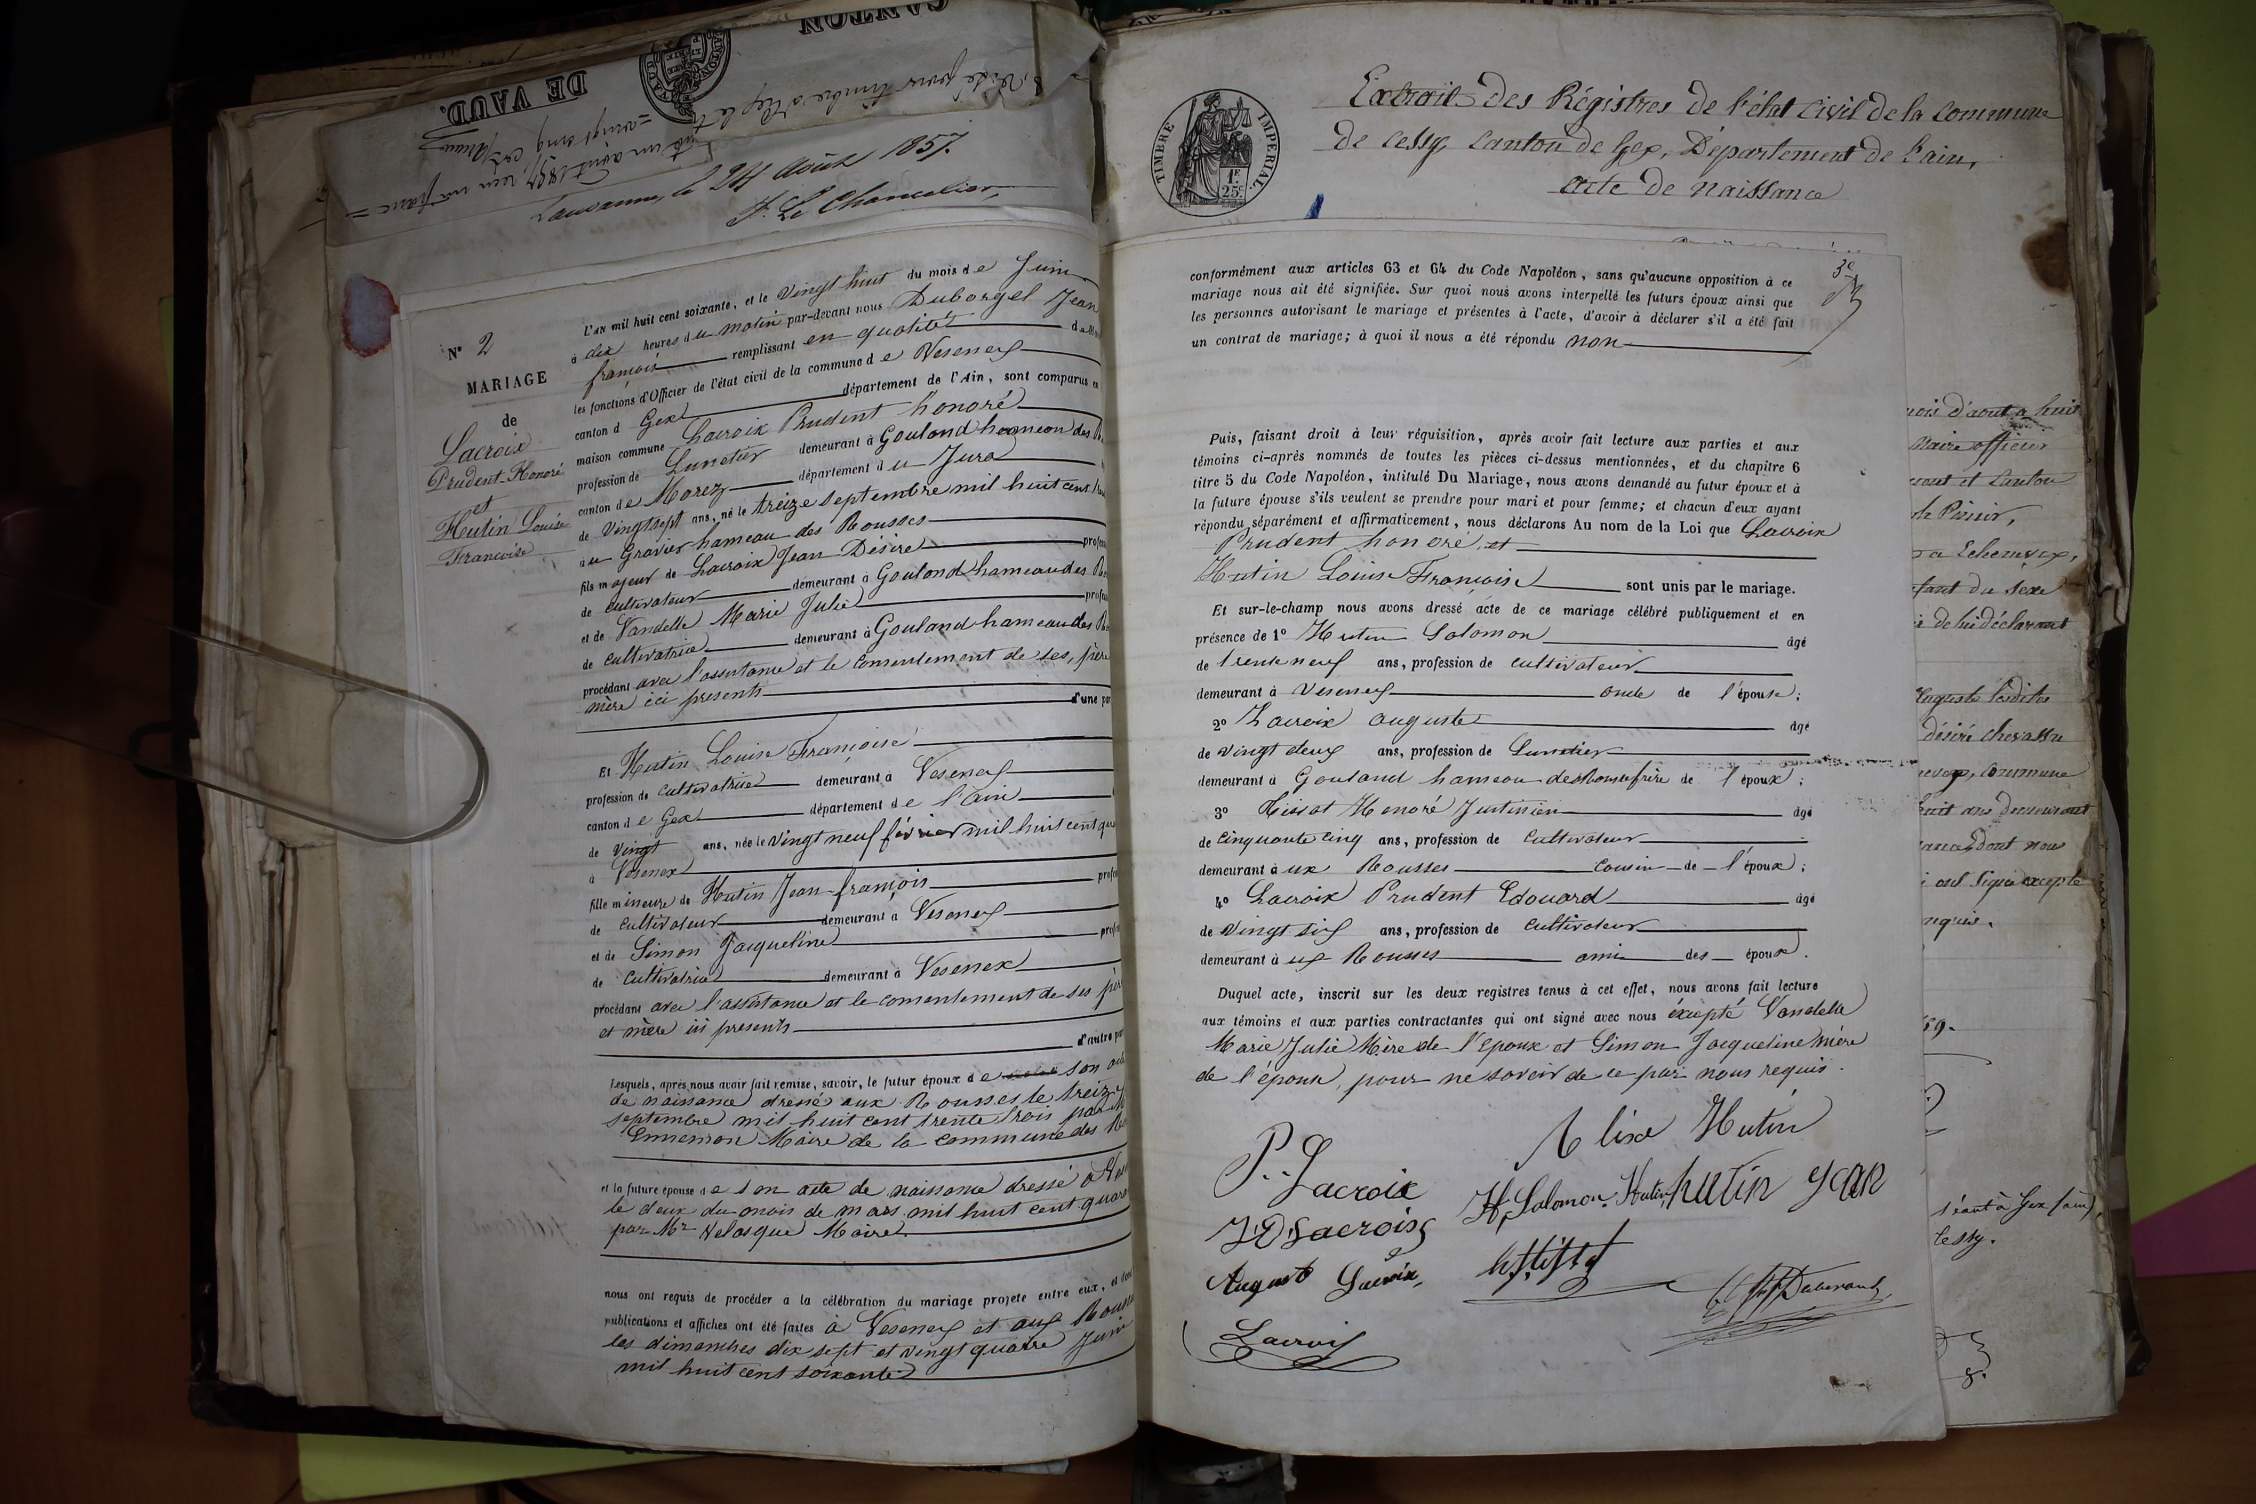 CANTON
DE VAUD.
Lausanne, le 24 Août 1857.
P. Le Chancelier,
N° 2
MARIAGE
de
Lacroix
Prudent Honoré
et
Hutin Louise
Francoise
L'an mil huit cent soixante, et le vingt huit du mois de Juin
à dix heures du matin par-devant nous Duborgel Jean
françois remplissant en qualité
les fonctions d'Officier de l'état civil de la commune de Vesenex
canton d Gex département de l'Ain, sont comparus en
maison commune Lacroix Prudent honoré
profession de Lunetier demeurant à Gouland hameau des
canton de Morez département du Jura
de vingt sept ans, né le treize septembre mil huit cent
au Gravier hameau des Rousses
fils majeur de Lacroix Jean Désiré
de cultivateur demeurant à Gouland hameau des
et de Vandelle Marie Julie
de cultivatrice demeurant à Gouland hameau des
procédant avec l'assistance et le consentement de ses, père
mère ici presents d'une
Et Hutin Louise Françoise
profession de cultivatrice demeurant à Vesenex
canton de Gex département de l'ain
de vingt ans, née le vingt neuf février mil huit cent
à Vesenex
fille mineure de Hutin Jean françois
de cultivateur demeurant à Vesenex
et de Simon Jacqueline
de cultivatrice demeurant à Vesenex
procédant avec l'assistance et le consentement de ses père
et mère ici presents
d'autre
Lesquels, après nous avoir fait remise, savoir, le futur époux de son
de naissance dressé aux Rousses le treize
septembre mil huit cent trente trois par
Maire de la commune des
et la future épouse de son acte de naissance dressé à
le deux du mois de mars mil huit cent
par Mr Velasque Maire
nous ont requis de procéder a la célébration du mariage projeté entre eux, et dont
publications et affiches ont été faites à Vesenex et aux
les dimanches dix sept et vingt quatre Juin
mil huit cent soixante
TIMBRE IMPERIAL.
1F
25c
Extrait des Régistres de l'état civil de la commune
de cessy, canton de Gex, Département de l'ain,
acte de naissance
conformément aux articles 63 et 64 du Code Napoléon, sans qu'aucune opposition à ce
mariage nous ait été signifiée. Sur quoi nous avons interpellé les futurs époux ainsi que
les personnes autorisant le mariage et présentes à l'acte, d'avoir à déclarer s'il a été fait
un contrat de mariage; à quoi il nous a été répondu non
Puis, faisant droit à leur réquisition, après avoir fait lecture aux parties et aux
témoins ci-après nommés de toutes les pièces ci-dessus mentionnées, et du chapitre 6
titre 5 du Code Napoléon, intitulé Du Mariage, nous avons demandé au futur époux et à
la future épouse s'ils veulent se prendre pour mari et pour femme; et chacun d'eux ayant
répondu séparément et affirmativement, nous déclarons Au nom de la Loi que Lacroix
Prudent honoré, et
Hutin Louise Françoise sont unis par le mariage.
Et sur-le-champ nous avons dressé acte de ce mariage célébré publiquement et en
présence de 1° Hutin Salomon âgé
de trente neuf ans, profession de cultivateur
demeurant à Vesenex oncle de l'épouse;
2° Lacroix auguste âgé
de vingt deux ans, profession de Lunetier
demeurant à Gouland hameau des Rousses frère de l'époux;
3° Honoré Justinien âgé
de cinquante cinq ans, profession de cultivateur
demeurant aux Rousses cousin de l'époux;
4° Lacroix Prudent Edouard âgé
de vingt six ans, profession de cultivateur
demeurant à ux Rousses ami des époux.
Duquel acte, inscrit sur les deux registres tenus à cet effet, nous avons fait lecture
aux témoins et aux parties contractantes qui ont signé avec nous éxcepté Vandelle
Marie Julie Mère de l'époux et Simon Jacqueline mère
de l'épouse, pour ne savoir de ce par nous requis.
Hutin
P. Lacroix
H, Salomon. Hutin, hutin jean
J D Lacroix
August Lacroix,
Lacroix
mois d'aout a huit
Maire officier
et canton
a Echenevex,
du sexe
déclarant
Auguste
désiré chevassu
commune
huit ans demeurant
dont nous
signé excepté
requis.
59.
séant à Gex (ain),
Cessy.
8.